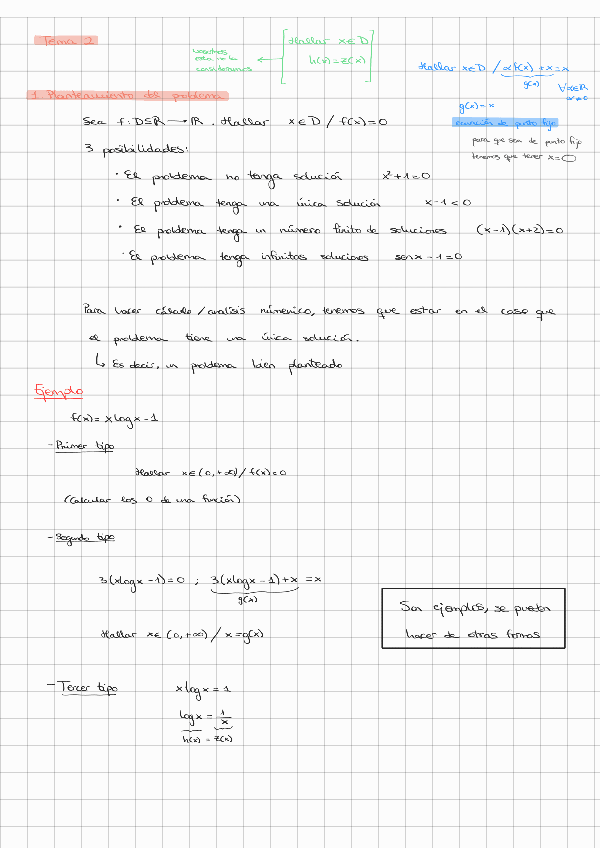 Tema 2
Hallar x∈D
h(x)=z(x)
nosotros
esta no la
consideramos
Hallar x∈D / αf(x) + x = x
g(x)
∀α∈ℝ
α≠0
g(x)=x
ecuación de punto fijo
para que sea de punto fijo
tenemos que tener x=
1. Planteamiento del problema
Sea f: D⊆ℝ → ℝ. Hallar x∈D / f(x)=0
3 posibilidades:
· El problema no tenga solución x²+1=0
· El problema tenga una única solución x-1=0
· El problema tenga un número finito de soluciones (x-1)(x+2)=0
· El problema tenga infinitas soluciones senx-1=0
Para hacer cálculo/analisis númerico, tenemos que estar en el caso que
el problema tiene una única solución.
↳ Es decir, un problema bien planteado
Ejemplo
f(x)= xlogx-1
- Primer tipo
Hallar x∈(0,+∞)/ f(x)=0
(Calcular los 0 de una función)
- Segundo tipo
3(xlogx-1)=0 ; 3(xlogx-1)+x =x
g(x)
Hallar x∈(0,+∞) / x=g(x)
Son ejemplos, se pueden
hacer de otras formas
- Tercer tipo xlogx=1
logx = 1/x
h(x) = z(x)